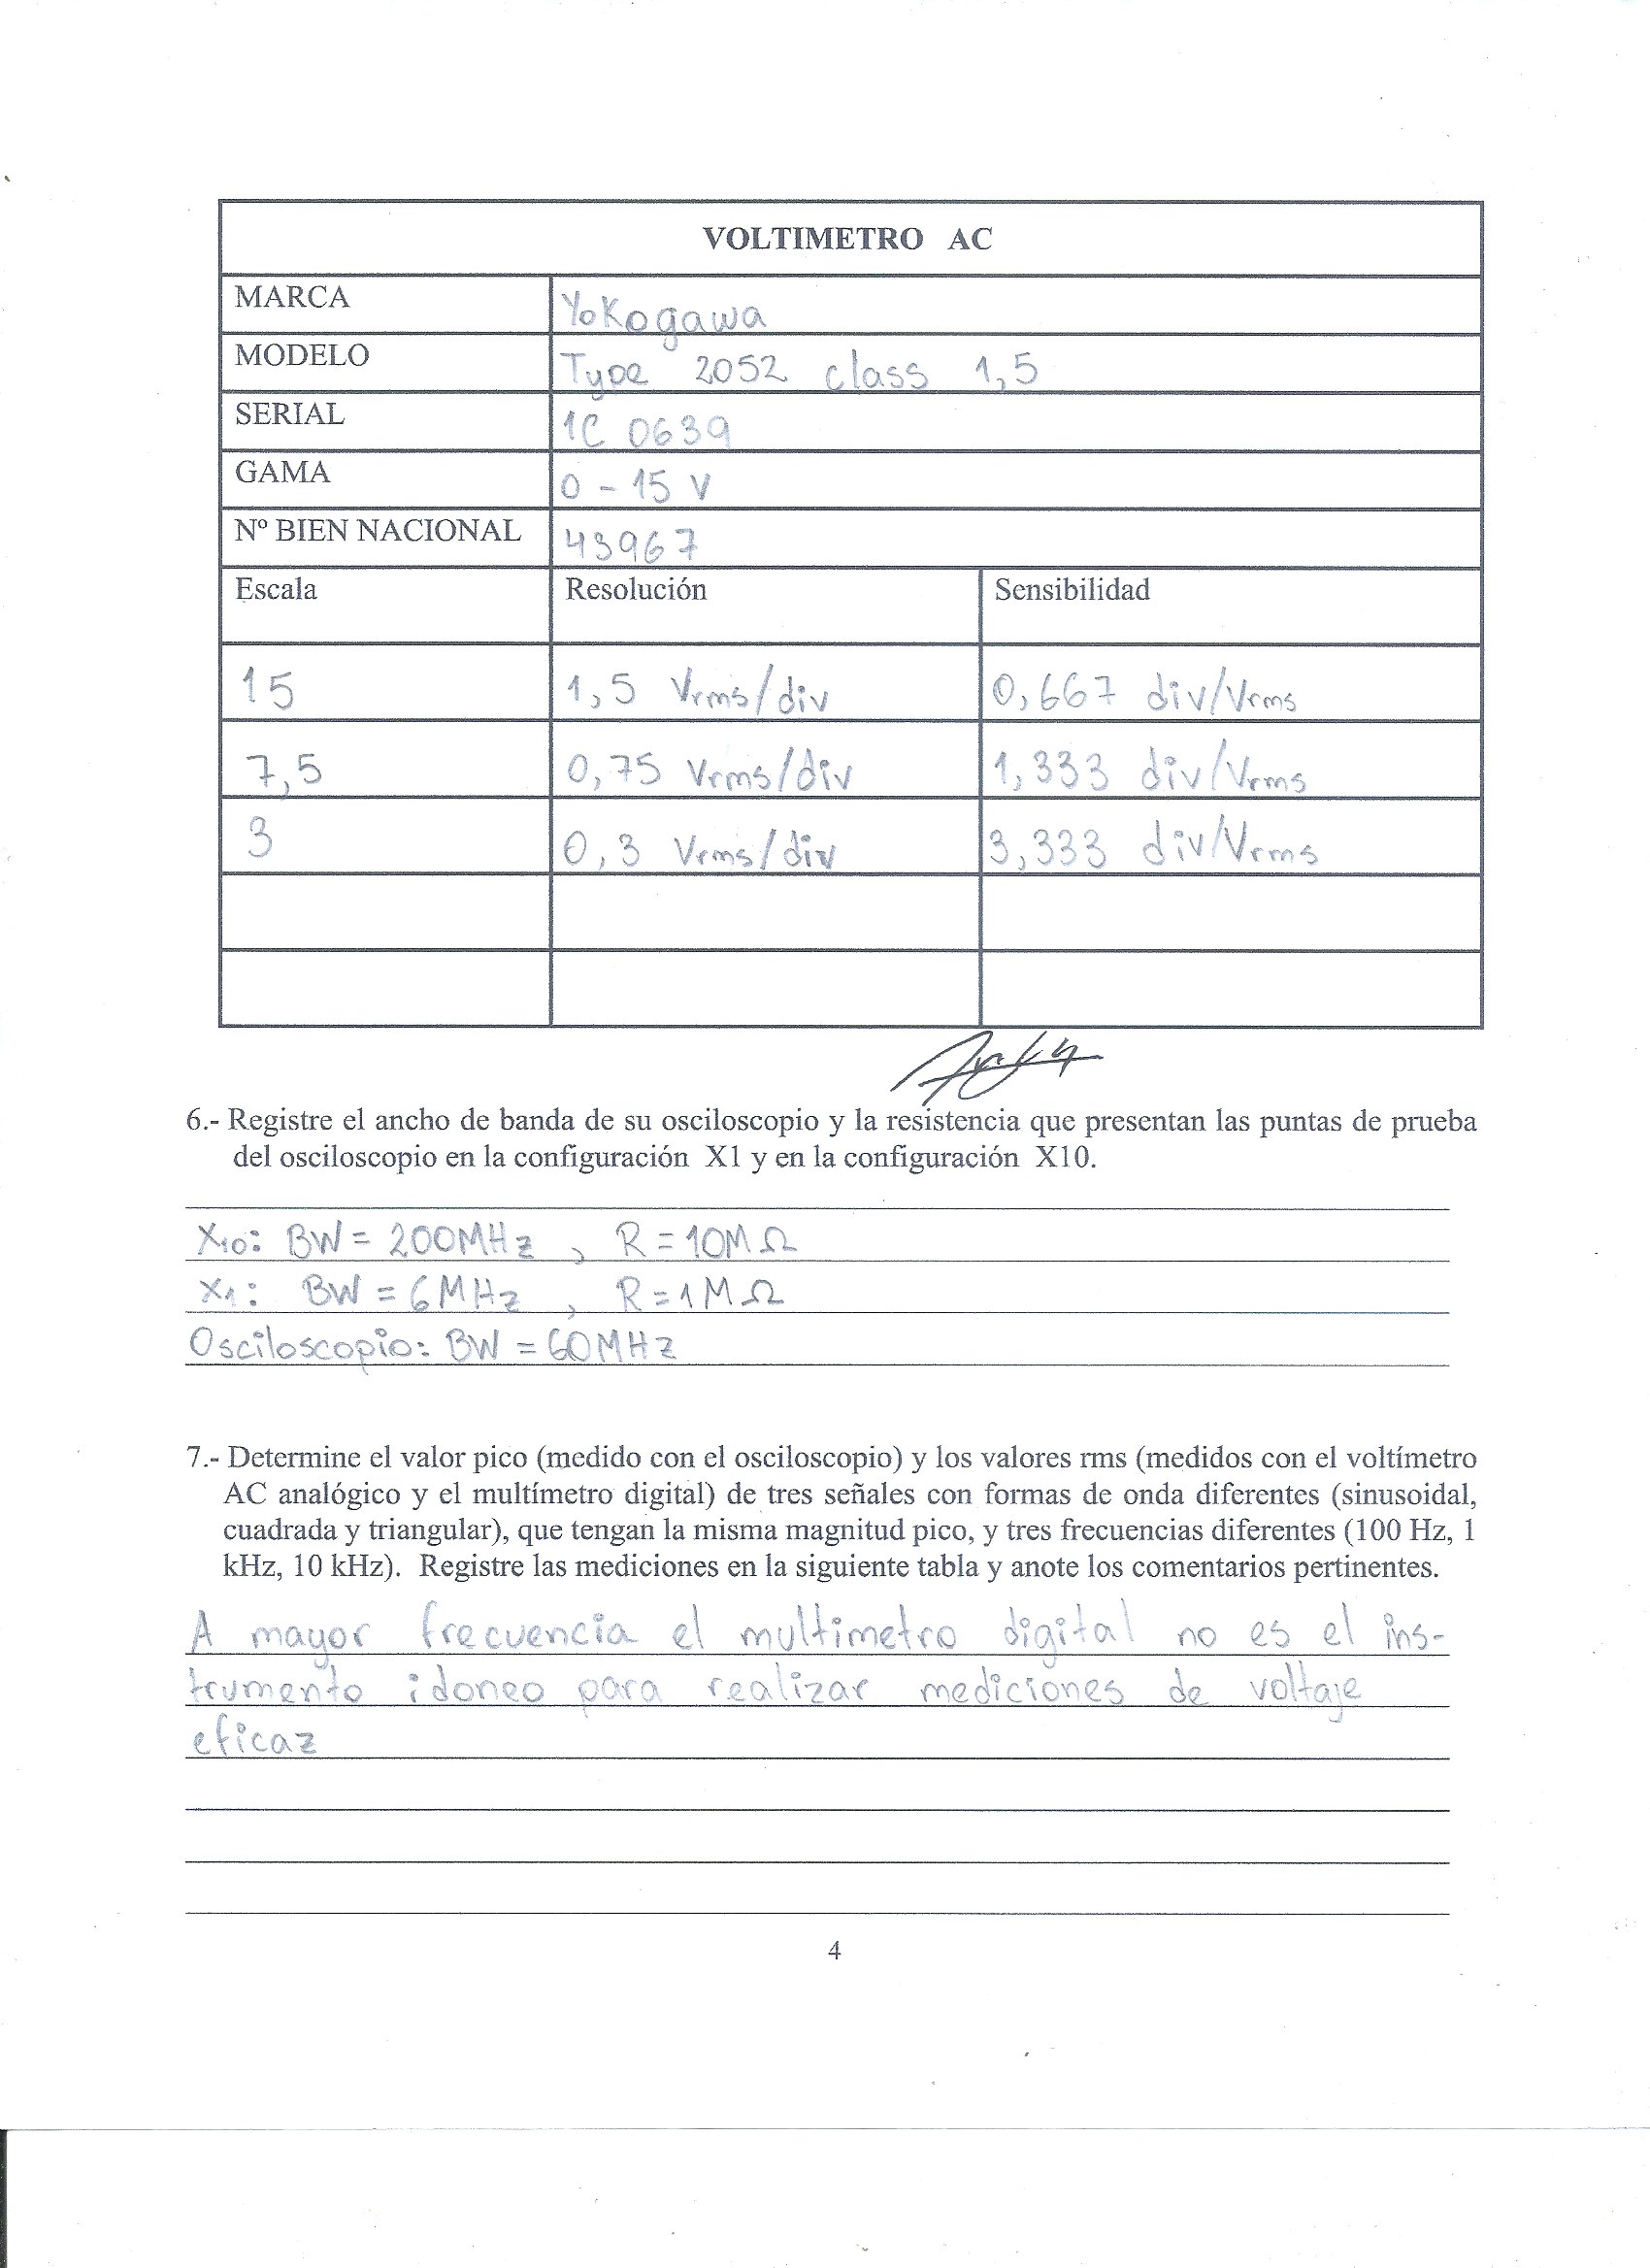 VOLTIMETRO AC
MARCA Yokogawa
MODELO Type 2052 class 1,5
SERIAL 1C 0639
GAMA 0 - 15 V
Nº BIEN NACIONAL 43967
Escala Resolución Sensibilidad
15 1,5 Vrms/div 0,667 div/Vrms
7,5 0,75 Vrms/div 1,333 div/Vrms
3 0,3 Vrms/div 3,333 div/Vrms
6.- Registre el ancho de banda de su osciloscopio y la resistencia que presentan las puntas de prueba
del osciloscopio en la configuración X1 y en la configuración X10.
X10: BW = 200MHz , R = 10MΩ
X1: BW = 6MHz , R = 1MΩ
Osciloscopio: BW = 60MHz
7.- Determine el valor pico (medido con el osciloscopio) y los valores rms (medidos con el voltímetro
AC analógico y el multímetro digital) de tres señales con formas de onda diferentes (sinusoidal,
cuadrada y triangular), que tengan la misma magnitud pico, y tres frecuencias diferentes (100 Hz, 1
kHz, 10 kHz). Registre las mediciones en la siguiente tabla y anote los comentarios pertinentes.
A mayor frecuencia el multimetro digital no es el ins-
trumento idoneo para realizar mediciones de voltaje
eficaz
4